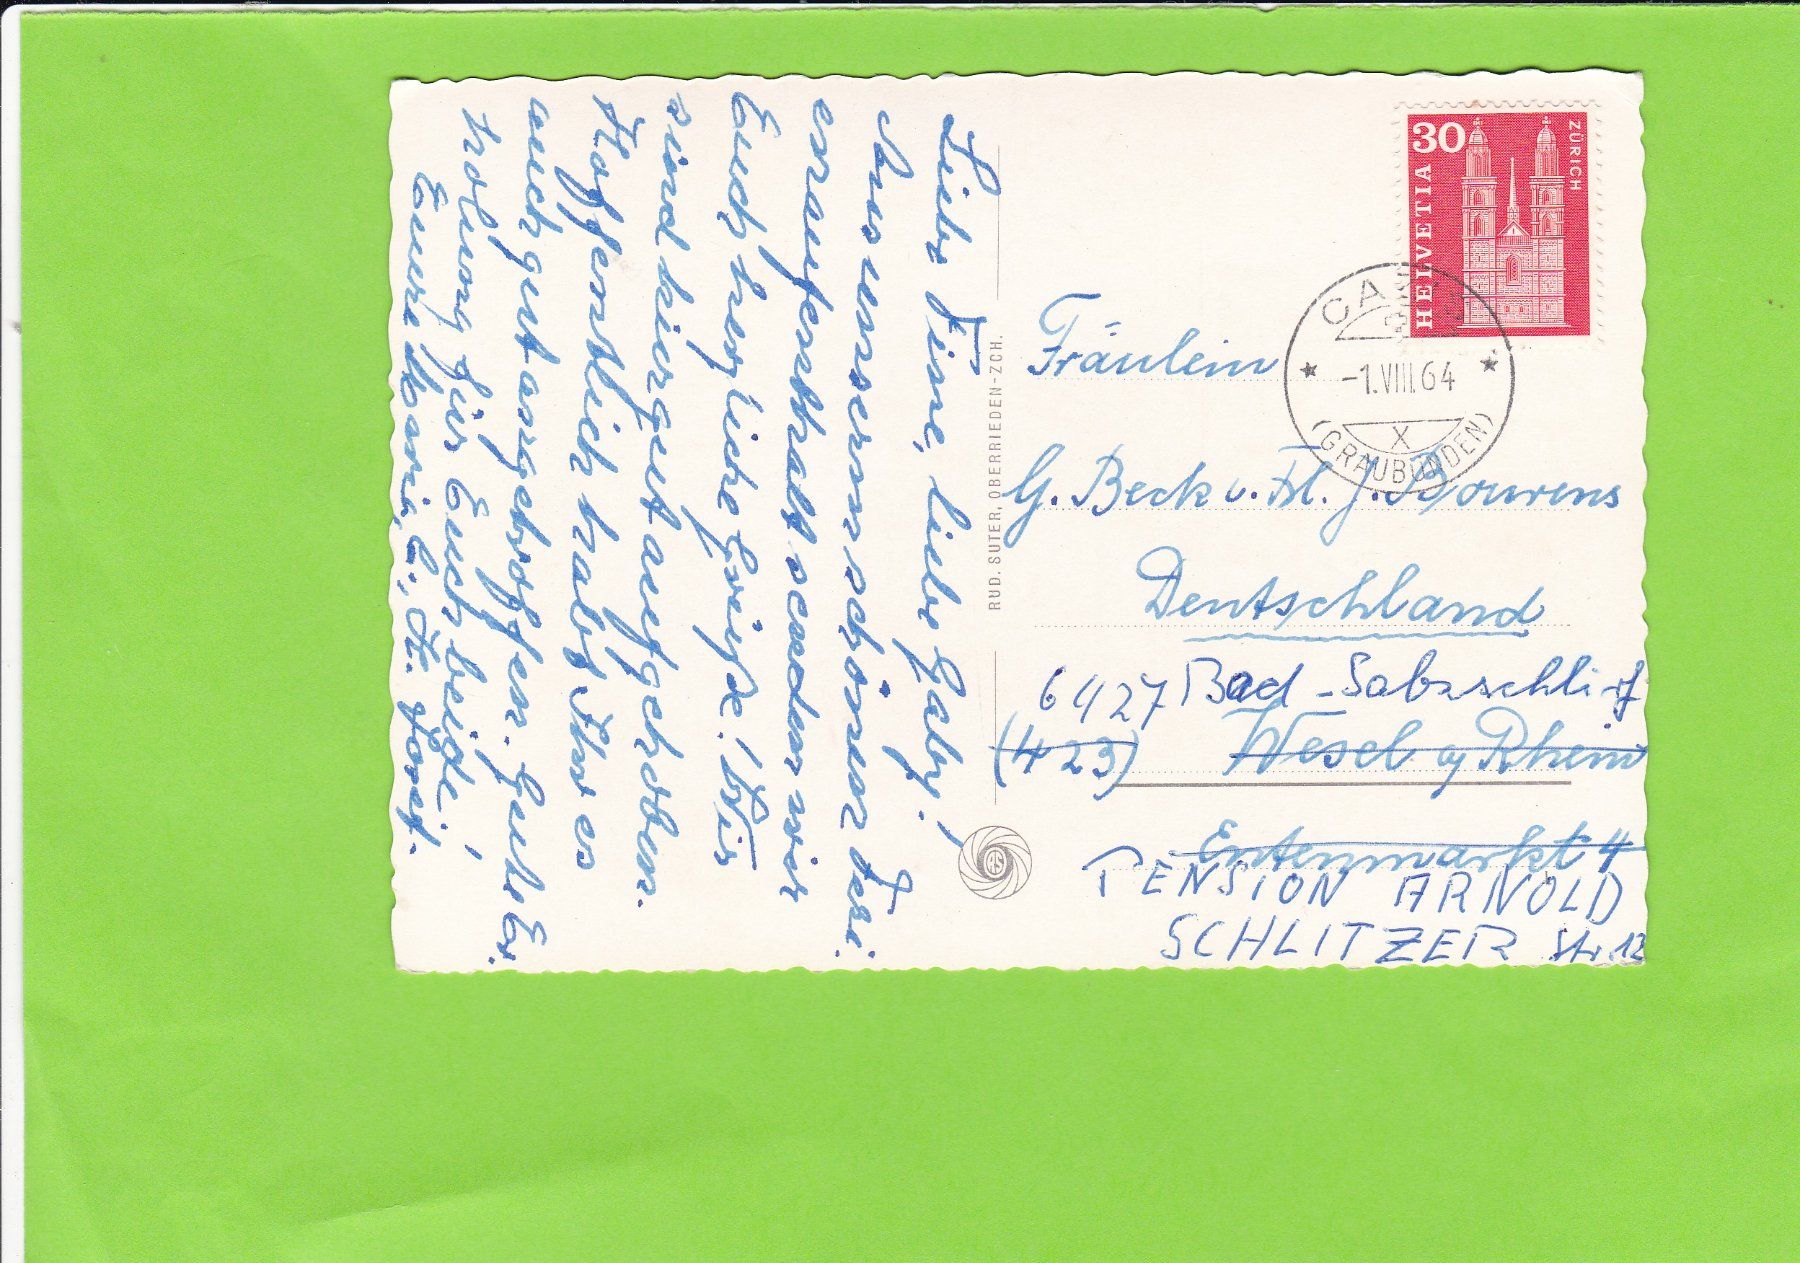 Liebe Fine, liebe Gaby!
Aus unserm schönen Feri-
enaufenthalt senden wir
Euch herzliche Grüße! Wir
sind hier gut aufgehoben.
Hoffentlich habt Ihr es
auch gut angetroffen. Gute Er-
holung für Euch beide,
Eure
RUD. SUTER, OBERRIEDEN-ZCH.
30
HELVETIA
ZÜRICH
-1.VIII.64
X
(GRAUBÜNDEN)
Fräulein
G. Beck u. Frl. J.
Deutschland
6427 Bad-Salzschlirf
(423) Wesel a/Rhein
Entenmarkt 4
PENSION ARNOLD
SCHLITZER Str. 12